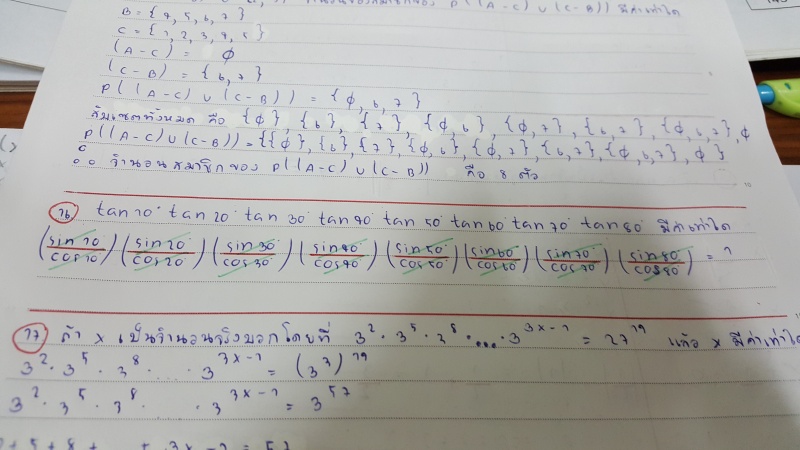 จำนวนของสมาชิกของ P((A-C) ∪ (C-B)) มีค่าเท่าใด
B = {4, 5, 6, 7}
C = {1, 2, 3, 4, 5}
(A-C) = ϕ
(C-B) = {6, 7}
P((A-C) ∪ (C-B)) = {ϕ, 6, 7}
สับเซตทั้งหมด คือ {ϕ}, {6}, {7}, {ϕ, 6}, {ϕ, 7}, {6, 7}, {ϕ, 6, 7}, ϕ
P((A-C) ∪ (C-B)) = {{ϕ}, {6}, {7}, {ϕ, 6}, {ϕ, 7}, {6, 7}, {ϕ, 6, 7}, ϕ}
∴ จำนวนสมาชิกของ P((A-C) ∪ (C-B)) คือ 8 ตัว
16 tan 10° tan 20° tan 30° tan 40° tan 50° tan 60° tan 70° tan 80° มีค่าเท่าใด
(sin10/cos10)(sin20/cos20)(sin30/cos30)(sin40/cos40)(sin50/cos50)(sin60/cos60)(sin70/cos70)(sin80/cos80) = 1
17 ถ้า x เป็นจำนวนจริงบวกโดยที่ 3^2 · 3^5 · 3^8 · .... · 3^{3x-1} = 27^{19} แล้ว x มีค่าเท่าใด
3^2 · 3^5 · 3^8 · .... · 3^{3x-1} = (3^3)^{19}
3^2 · 3^5 · 3^8 · .... · 3^{3x-1} = 3^{57}
2 + 5 + 8 + .... + 3x - 1 = 57